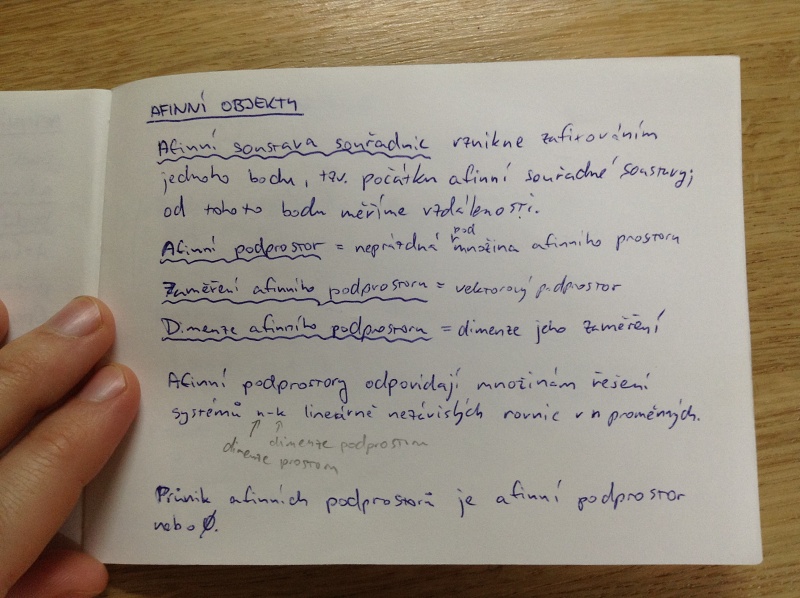 AFINNÍ OBJEKTY
Afinní soustava souřadnic vznikne zafixováním
jednoho bodu, tzv. počátku afinní souřadné soustavy;
od tohoto bodu měříme vzdálenosti.
Afinní podprostor = neprázdná podmnožina afinního prostoru
Zaměření afinního podprostoru = vektorový podprostor
Dimenze afinního podprostoru = dimenze jeho zaměření
Afinní podprostory odpovídají množinám řešení
systémů n-k lineárně nezávislých rovnic v n proměnných.
dimenze podprostoru
dimenze prostoru
Průnik afinních podprostorů je afinní podprostor
nebo ∅.